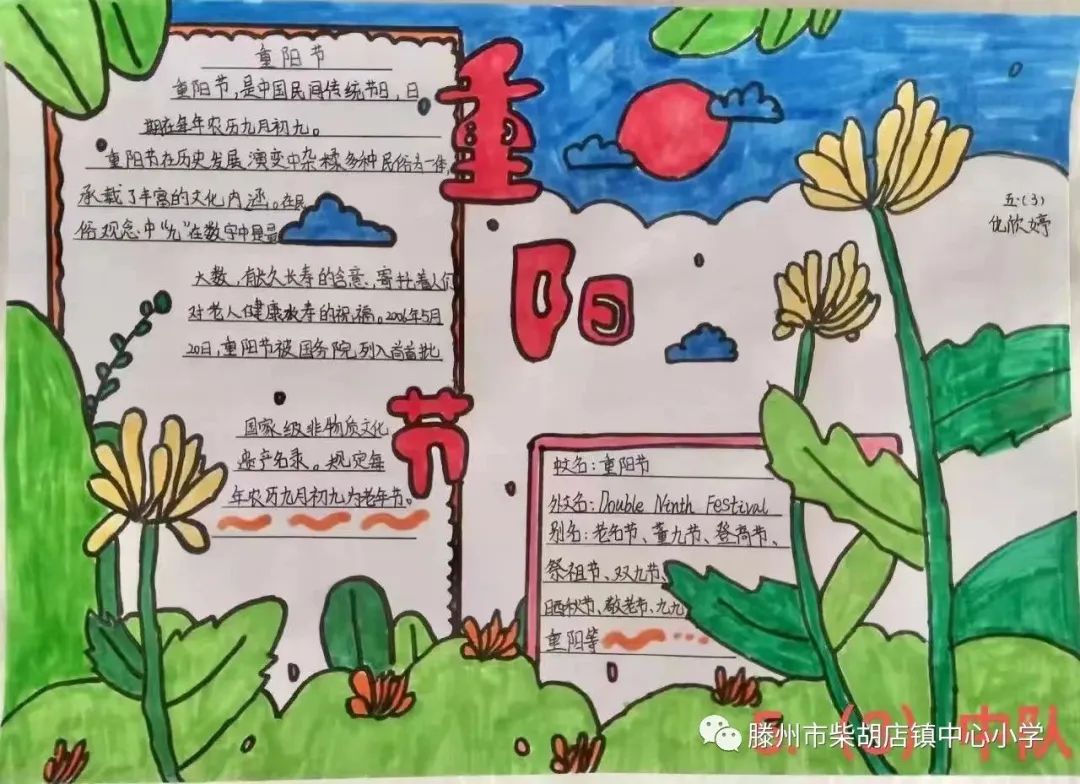 重阳节
重阳节,是中国民间传统节日,日
期在每年农历九月初九。
重阳节在历史发展演变中杂糅多种民俗为一体,
承载了丰富的文化内涵。在民
俗观念中“九”在数字中是最
大数,有长久长寿的含意,寄托着人们
对老人健康长寿的祝福。2006年5月
20日,重阳节被国务院列入首批
国家级非物质文化
遗产名录。规定每
年农历九月初九为老年节。
重
阳
节
五.(3)
欣婷
中文名:重阳节
外文名:Double Ninth Festival
别名:老名节、重九节、登高节、
祭祖节、双九节、
晒秋节、敬老节、九九
重阳等
5.(3)中队
滕州市柴胡店镇中心小学